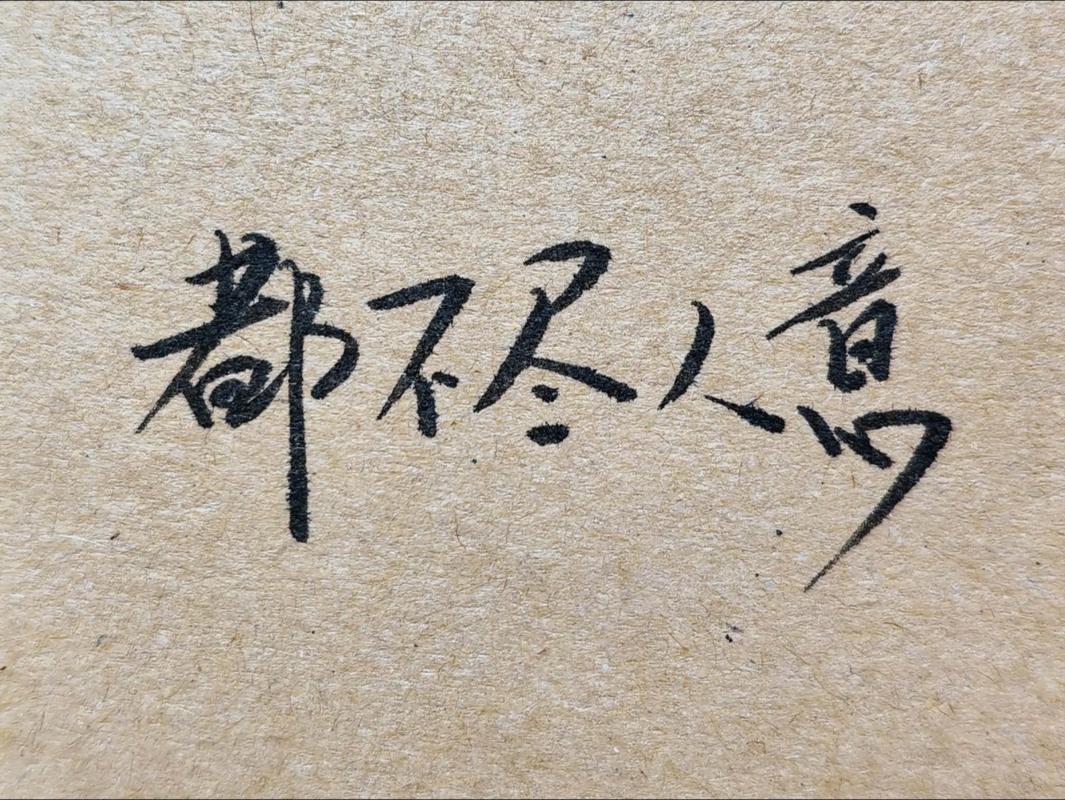 都不尽人意